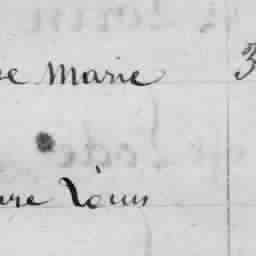 e Marie 3
re Louis